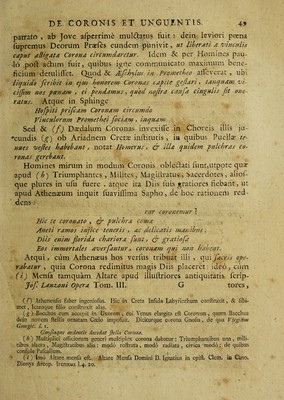 DE CORONIS ET UNGUENTIS. 49
patrato , ab Jove asperrimè mulctatus fuit : dein leviori pœna
supremus Deorum Præses eundem punivit, ut liberati à vinculis
caput alligata Corona circumdaretur. Idem & per Homines pau-
lo post actum fuit, quibus igne communicato maximum bene-
ficium detulisset. Quod & Æschylus in Prometheo asseverat, ubi
liquido scribit in ejus honorem Coronas capite gestari , tanquam vi-
tissim nos pœnam , ei pendamus, quòd nostra causa cingulis sit one-
ratus. Atque in Sphinge
Hospiti priscam Coronam circumdo
Vinculorum Promethei sociam , inquam
Sed & (f) Dædalum Coronas injecisse in Choreis illis ju-
cundis (g) ob Ariadnem Cretæ institutis , in quibus Puellæ te-
nues vestes habebant , notat Homerus , & illa quidem pulchras co-
ronas gerebant.
Homines mirum in modum Coronis oblectati sunt, utpote quæ
apud (h) Triumphantes , Milites, Magistratus, Sacerdotes , alios-
que plures in usu fuere . atque ita Diis suis gratiores fiebant, ut
apud Athenæum inquit suavissima Sapho, de hoc rationem red-
dens :
cur coronemur ?
Hic te coronato , & pulchra coma
Aneti ramos injice teneris , ac delicatis manibus ;
Diis enim florida chariora sunt, & gratiosa
Eos immortales aversantur , coronam qui non habent.
Atqui , cùm Athenæus hos versus tribuat illi , qui sacris ope-
rabatur , quia Corona redimitus magis Diis placeret : ideò , cùm
(i) Mensis tamquam Altare apud illustriores antiquitatis scrip-
Jos. Lanzoni Opera Tom. III. G tores ,
(f) Athenensis faber ingeniosus. Hic in Creta Insula Labyrinthum construxit , & filo-
que , Icaroque filio construxit alas.
(g) Bacchus eam accepit in Uxorem , cui Venus elargita est Coronam , quam Bacchus
dein novem stellis ornatam Cœlo imposuit. Diciturque corona Gnosia, de qua Virgilius
Georgic. L 1.
Gnosiaque ardentis decedat stella Corona.
(h) Multiplici officiorum generi multiplex corona dabatur : Triumphantibus una , mili-
tibus altera , Magistratibus alia : modò rostrata , modò radiata, civica modò ; de quibus
consule Paschalium.
(i) Imò Altare mensa est. Altare Mensa Domini D. Ignatius in epist. Clem. in Cano.
Dionys Areop. Irenæus l. 4. 20.